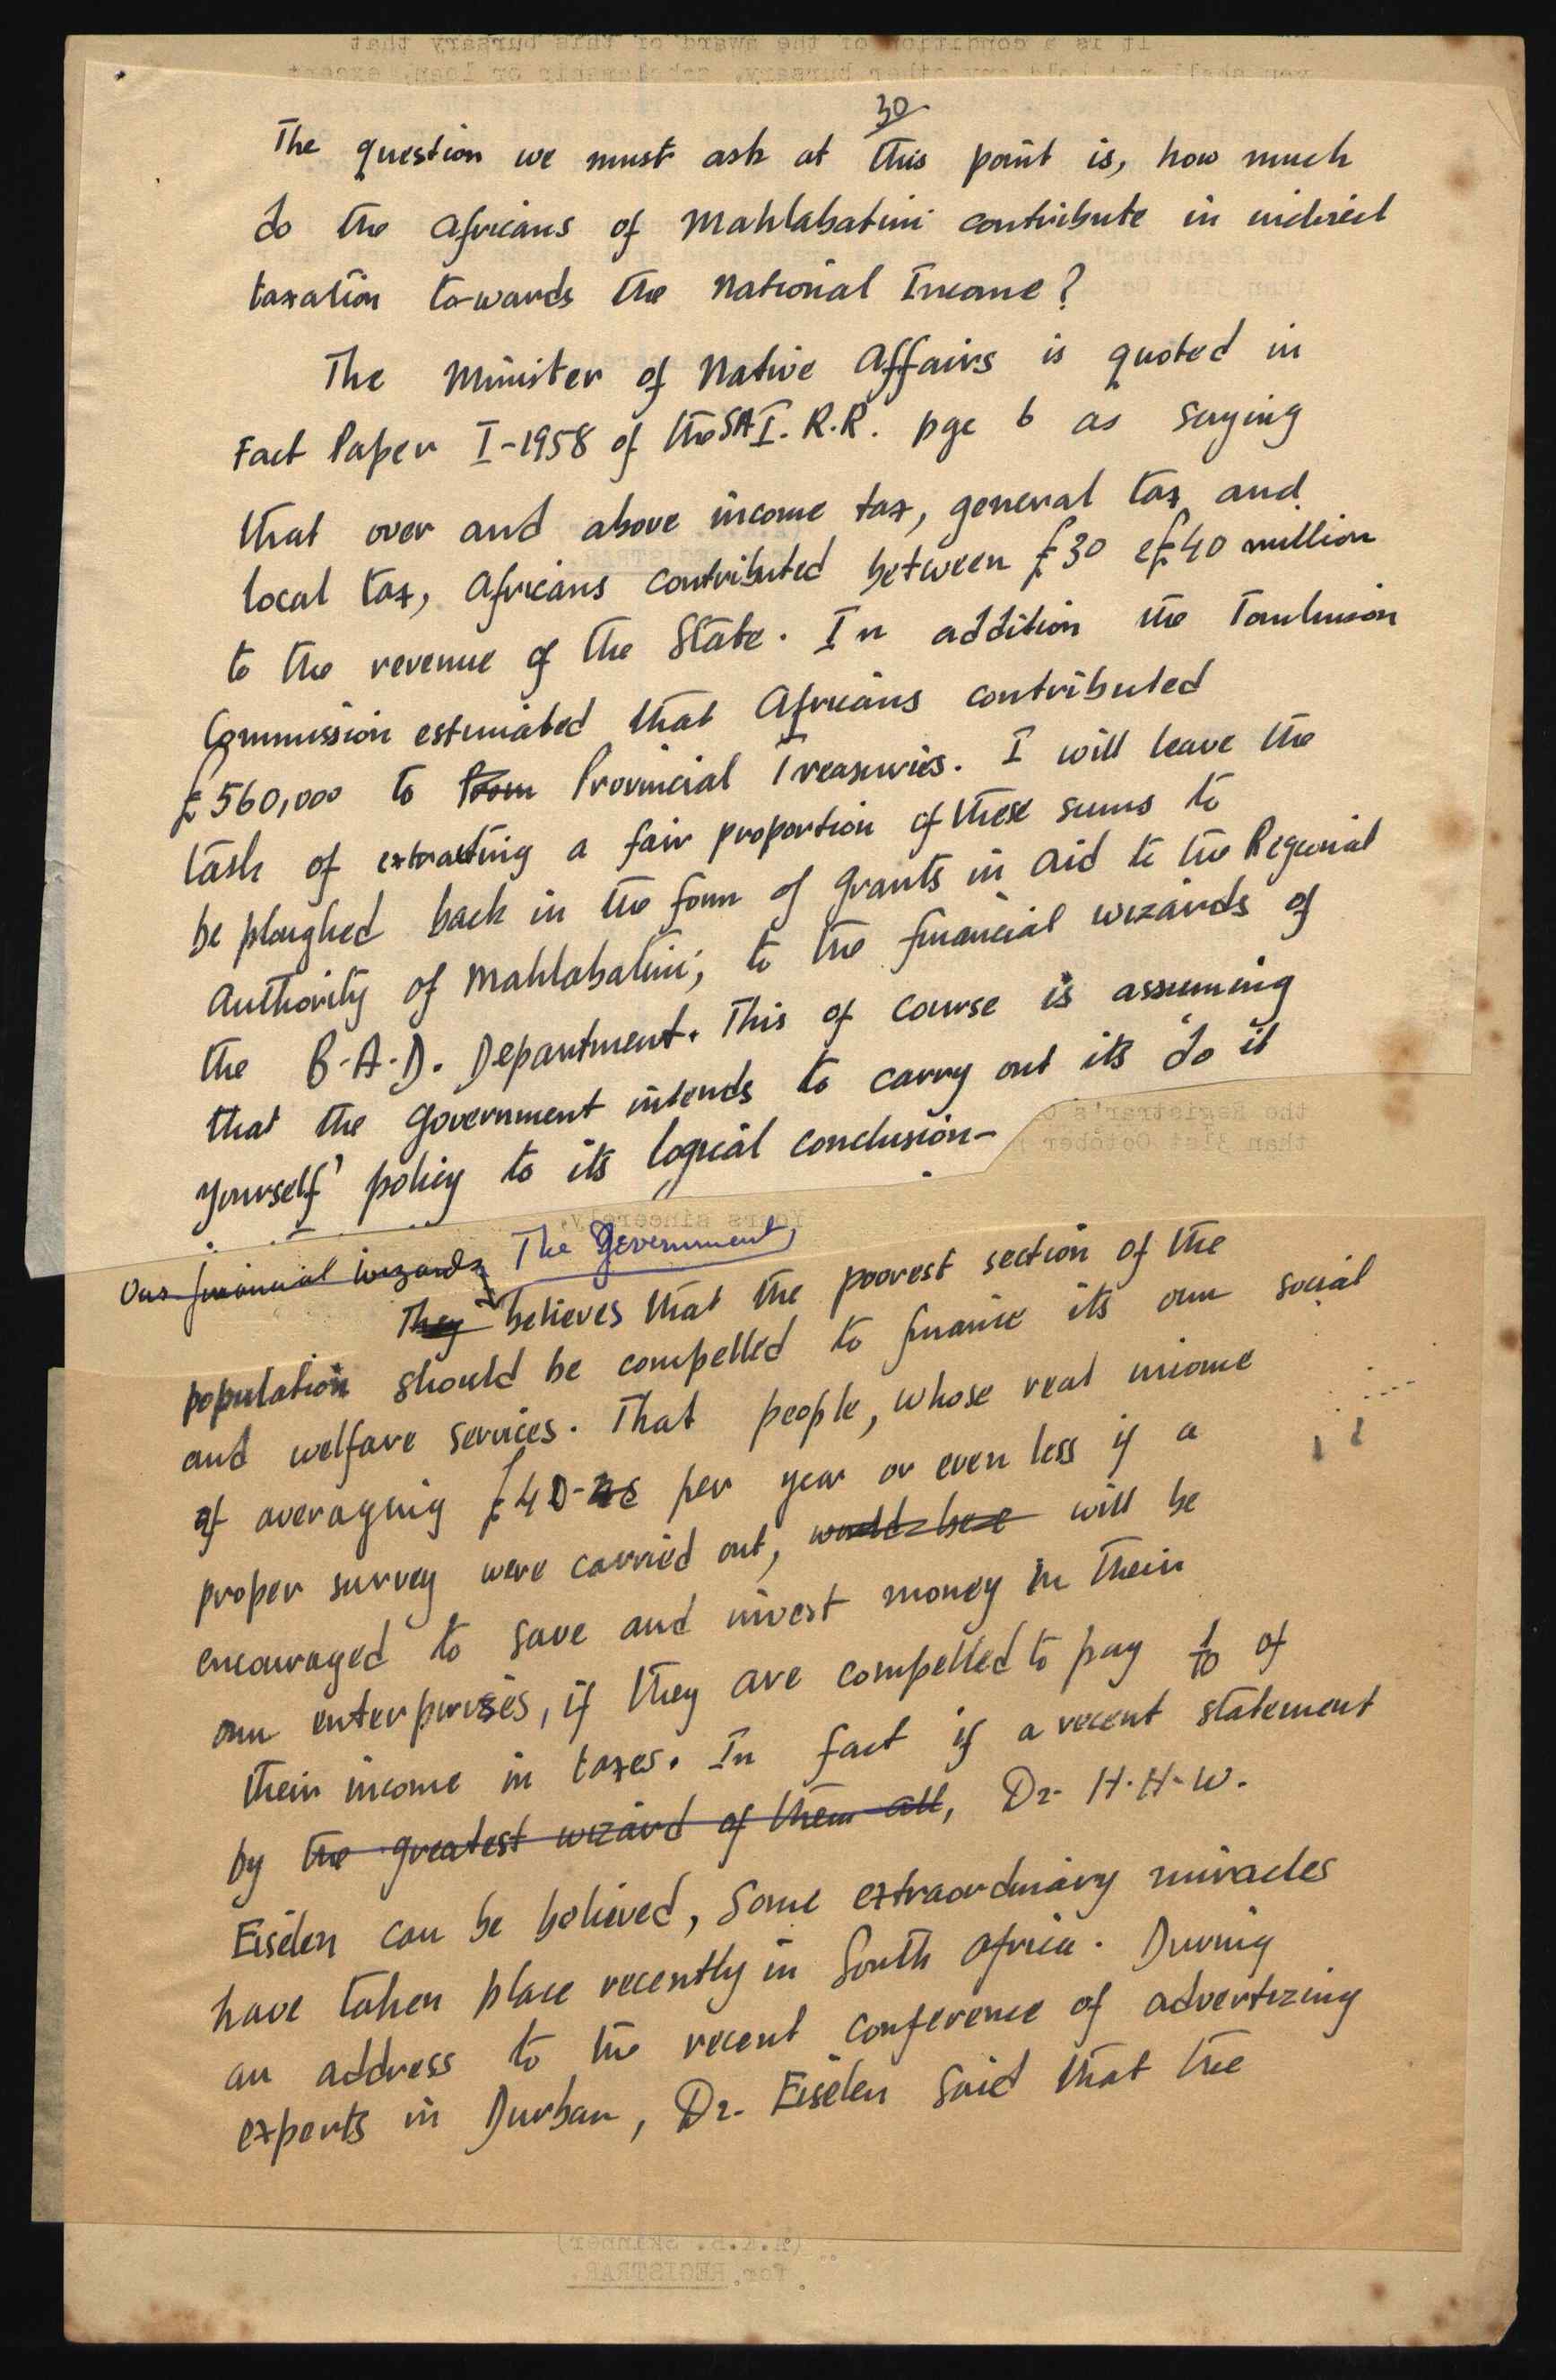 It is a condition of the award of this bursary that
you shall not hold any other bursary, scholarship or loan, except
30
The question we must ask at this point is, how much
do the Africans of Mahlabatini contribute in indirect
taxation towards the National Income?
The Minister of Native Affairs is quoted in
Fact Paper I-1958 of the SA I. R.R. pge 6 as saying
that over and above income tax, general tax and
local tax, Africans contributed between £30 & £40 million
to the revenue of the State. In addition the Tomlinson
Commission estimated that Africans contributed
£560,000 to Provincial Treasuries. I will leave the
task of extracting a fair proportion of these sums to
be ploughed back in the form of grants in aid to the Regional
Authority of Mahlabatini, to the financial wizards of
the B.A.D. Department. This of course is assuming
that the Government intends to carry out its 'do it
yourself' policy to its logical conclusion-
the Registrar's
than 31st October
Yours sincerely,
Our financial wizards The Government
They believes that the poorest section of the
population should be compelled to finance its own social
and welfare services. That people, whose real income
of averaging £40 per year or even less if a
proper survey were carried out, would be will be
encouraged to save and invest money in their
own enterprises, if they are compelled to pay 1/10 of
their income in taxes. In fact if a recent statement
by the greatest wizard of them all, Dr. H.H.W.
Eiselen can be believed, some extraordinary miracles
have taken place recently in South Africa. During
an address to the recent conference of advertizing
experts in Durban, Dr. Eiselen said that the
(A.K.B. Skinner)
for REGISTRAR.